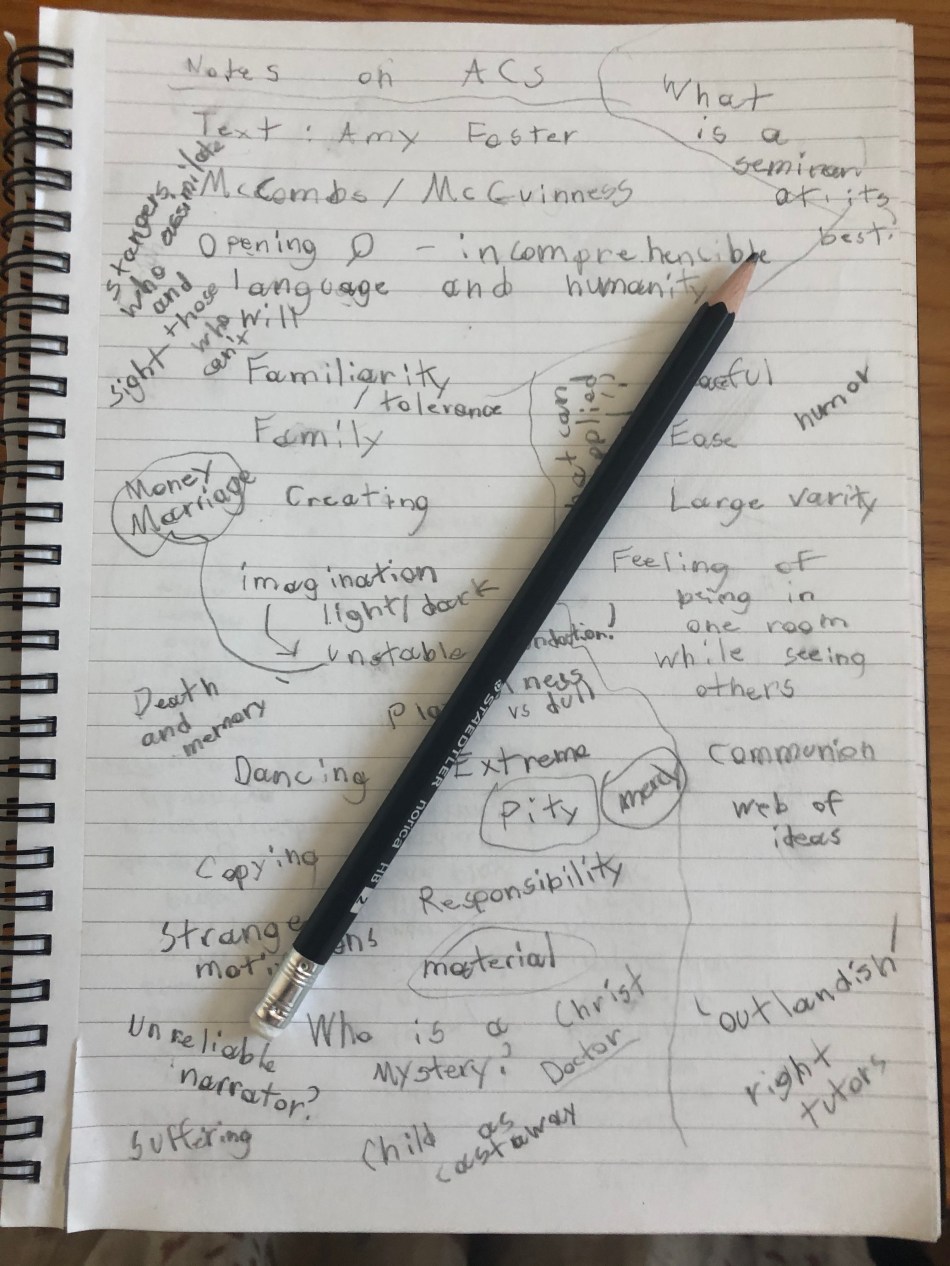 Notes on ACs
Text: Amy Foster
McCombs / McGuinness
Opening Q - incomprehencible
language and humanity
will
stangers
who assimilate
and
those
who
can't
Sight
Familiarity
/ tolerance
Family
Money
Marriage
Creating
imagination
light/dark
unstable
Death
and
memory
ness
vs dull
Dancing
Extreme
Pity
mercy
Copying
Responsibility
Strange
material
Unreliable
narrator?
Who is a Christ
Mystery? Doctor
Suffering
Child as
castaway
What
is a
at its
best.
humor
Ease
Large varity
Feeling of
being in
one room
while seeing
others
Communion
web of
ideas
'outlandish'
right
tutors
STAEDTLER norica HB 2